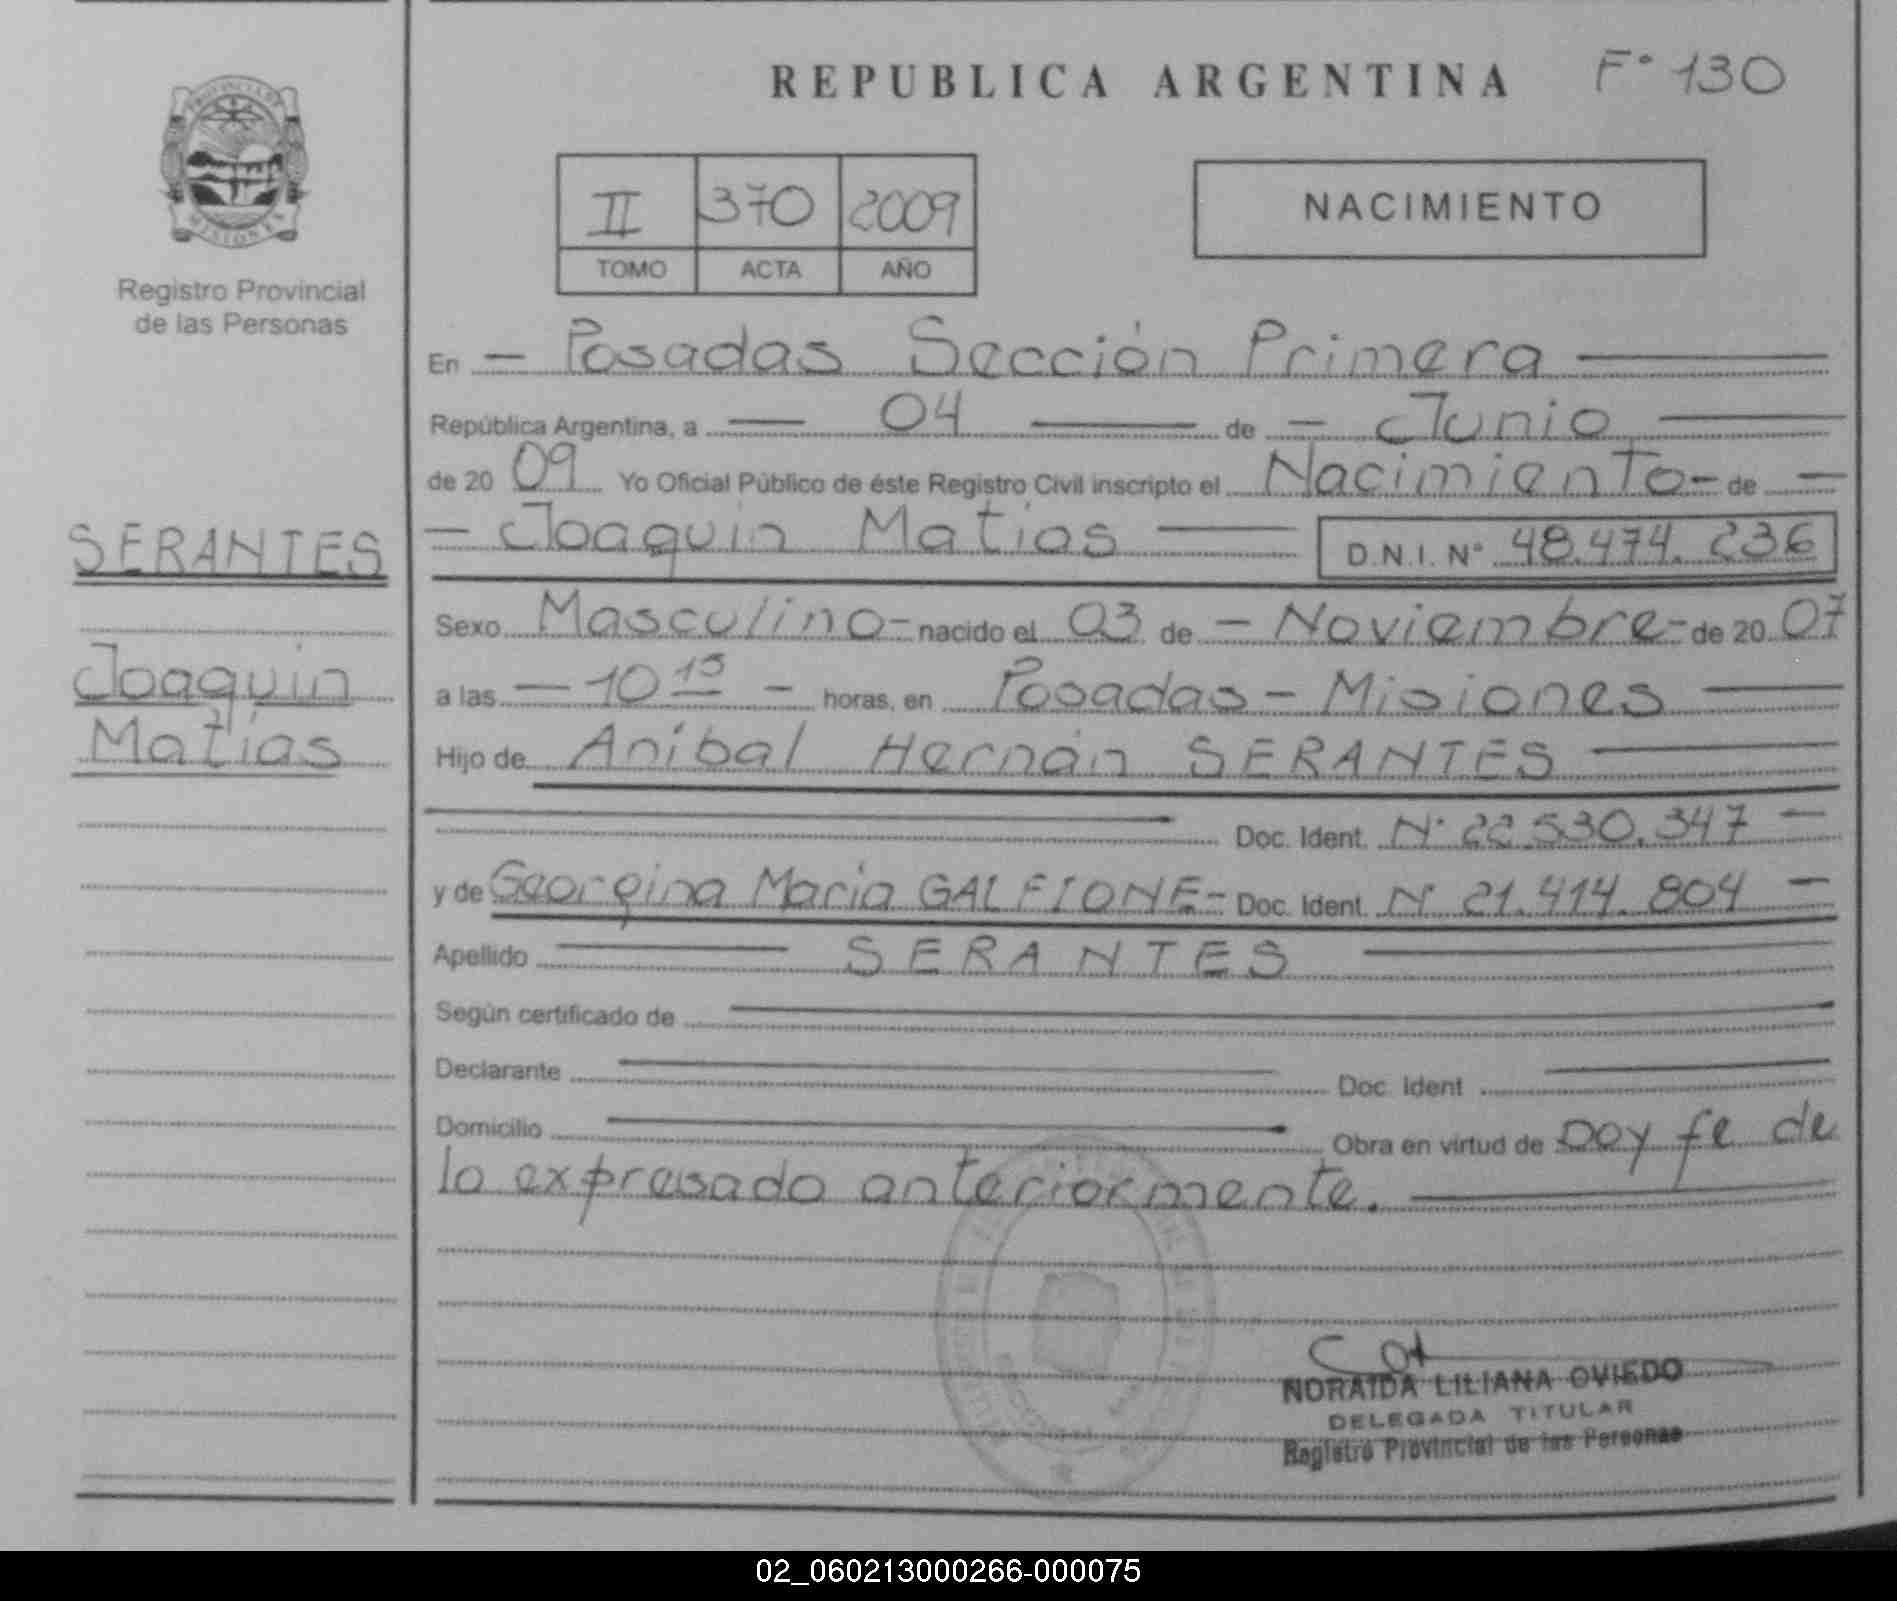 REPUBLICA ARGENTINA F° 130
II 370 2009
TOMO ACTA AÑO
NACIMIENTO
PROVINCIA DE
MISIONES
Registro Provincial
de las Personas
SERANTES
Joaquin
Matías
En — Posadas Sección Primera
República Argentina, a — 04 — de — Junio
de 20 09 Yo Oficial Público de éste Registro Civil inscripto el Nacimiento - de —
— Joaquin Matias — D.N.I. N° 48.474.236
Sexo Masculino - nacido el 03 de — Noviembre - de 20 07
a las — 10 15 — horas, en Posadas - Misiones
Hijo de Aníbal Hernán SERANTES
Doc. Ident. N° 22.530.347 —
y de Georgina Maria GALFIONE - Doc. Ident. N° 21.414.804 —
Apellido — SERANTES —
Según certificado de
Declarante Doc. Ident
Domicilio Obra en virtud de Doy fe de
lo expresado anteriormente.
NORAIDA LILIANA OVIEDO
DELEGADA TITULAR
Registro Provincial de las Personas
02_060213000266-000075